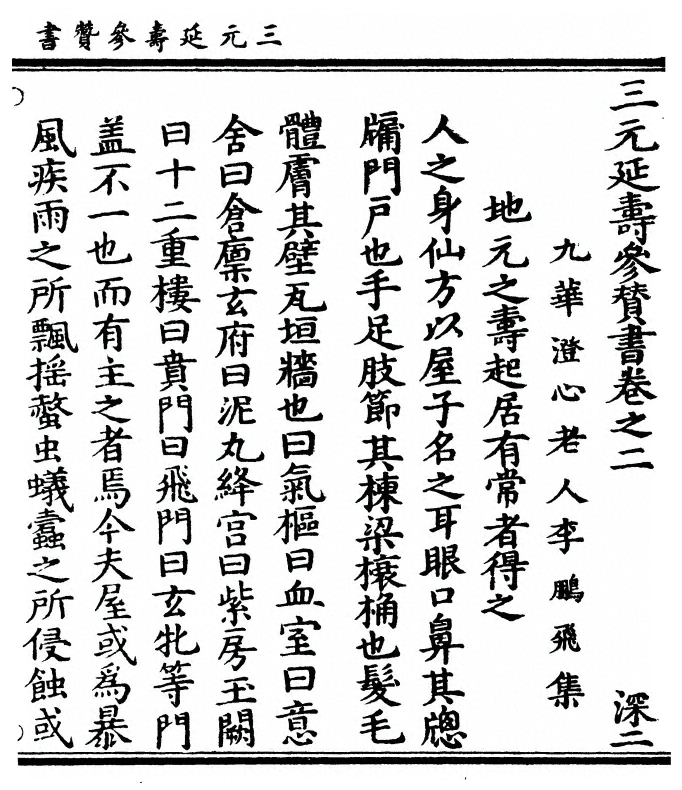 三元延壽參贊書
三元延壽參賛書卷之二　深二
九華澄心老人李鵬飛集
地元之壽起居有常者得之
人之身仙方以屋子名之耳眼口鼻其牎
牗門戸也手足肢節其棟梁榱桷也髮毛
體膚其壁瓦垣牆也曰氣樞曰血室曰意
舍曰倉廩玄府曰泥丸絳宫曰紫房玉闕
曰十二重樓曰賁門曰飛門曰玄牝等門
盖不一也而有主之者焉今夫屋或爲暴
風疾雨之所飄揺螫虫蟻蠹之所侵蝕或